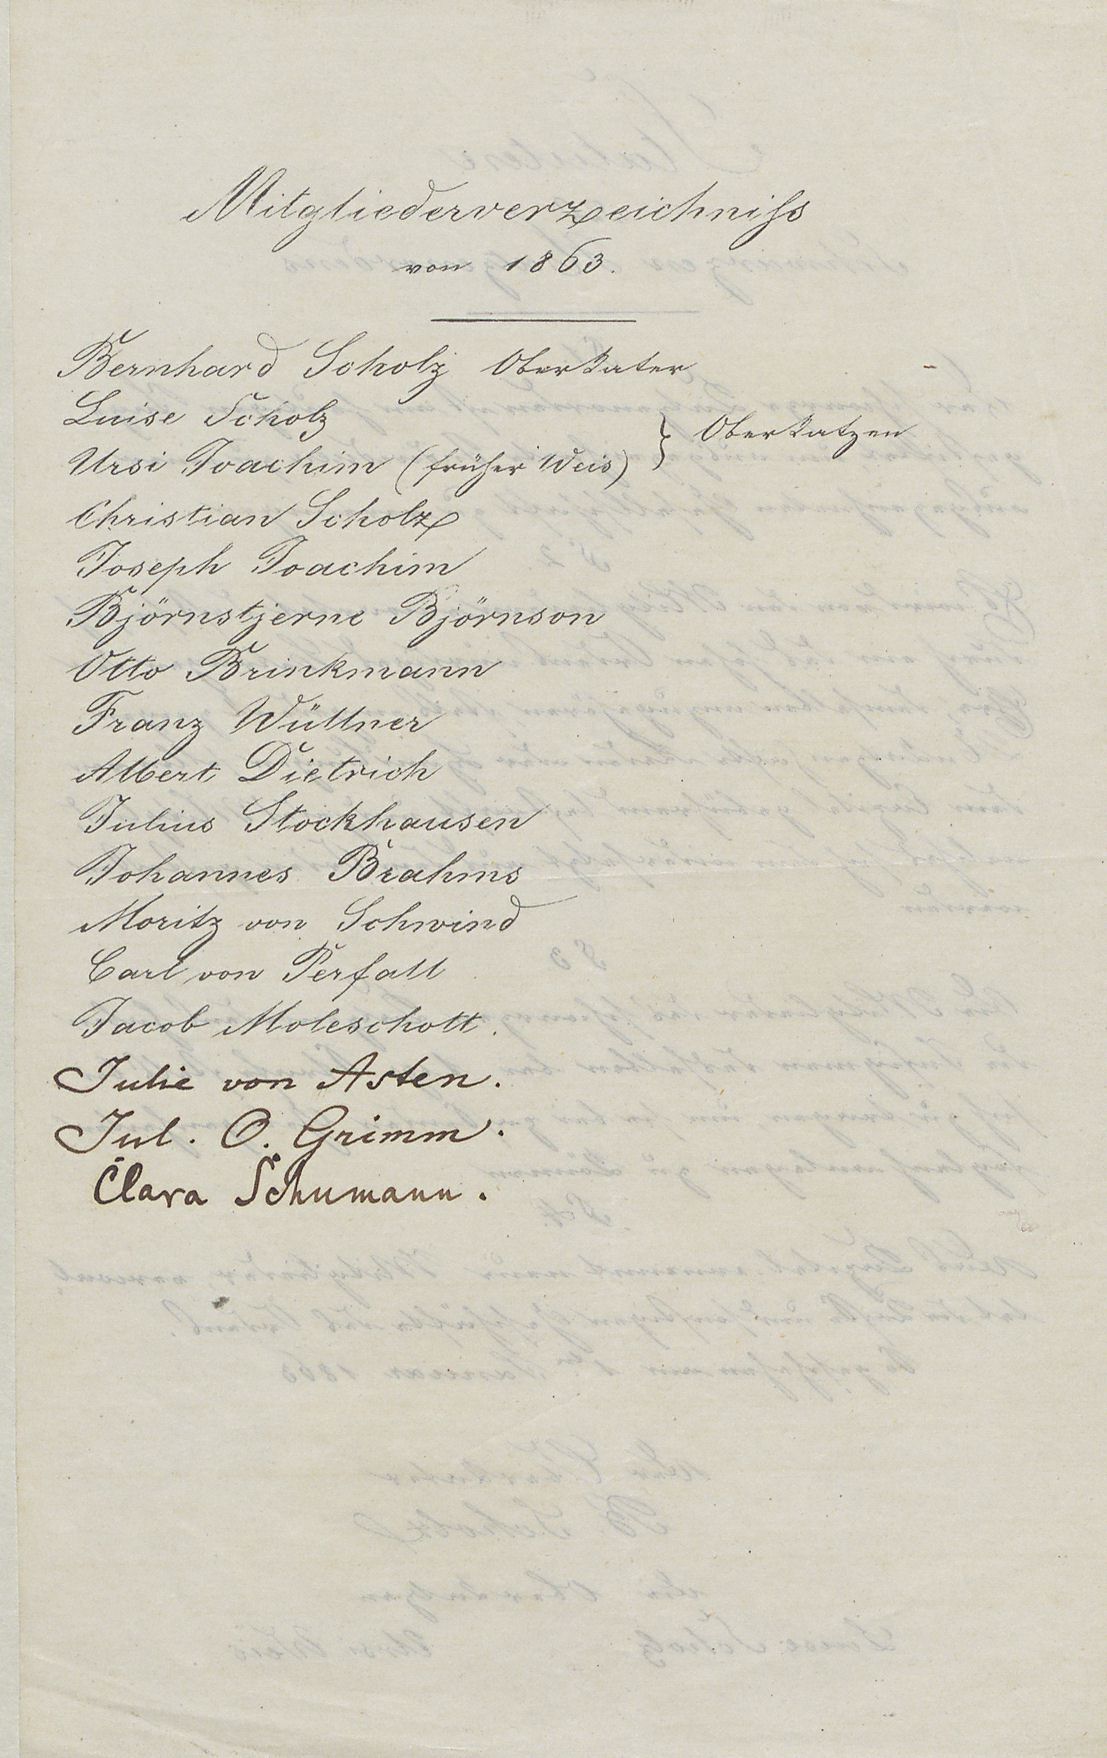 Mitgliederverzeichniss
von 1863.
Bernhard Scholz Oberkater
Luise Scholz
Ursi Joachim (früher Weis) } Oberkatzen
Christian Scholz
Joseph Joachim
Björnstjerne Björnson
Otto Brinkmann
Franz Wüllner
Albert Dietrich
Julius Stockhausen
Johannes Brahms
Moritz von Schwind
Carl von Perfall
Jacob Moleschott.
Julie von Asten.
Jul. O. Grimm.
Clara Schumann.